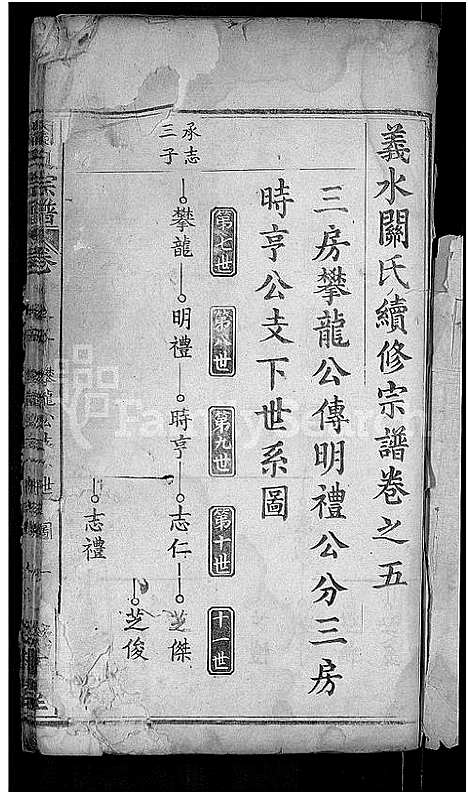 義水關氏續修宗譜卷之五
三房攀龍公傳明禮公分三房
時亨公支下世系圖
第七世
第八世
第九世
第十世
十一世
承志
三子
攀龍
明禮
時亨
志仁
芝傑
芝俊
志禮
宗譜
卷
世圖
FamilySearch